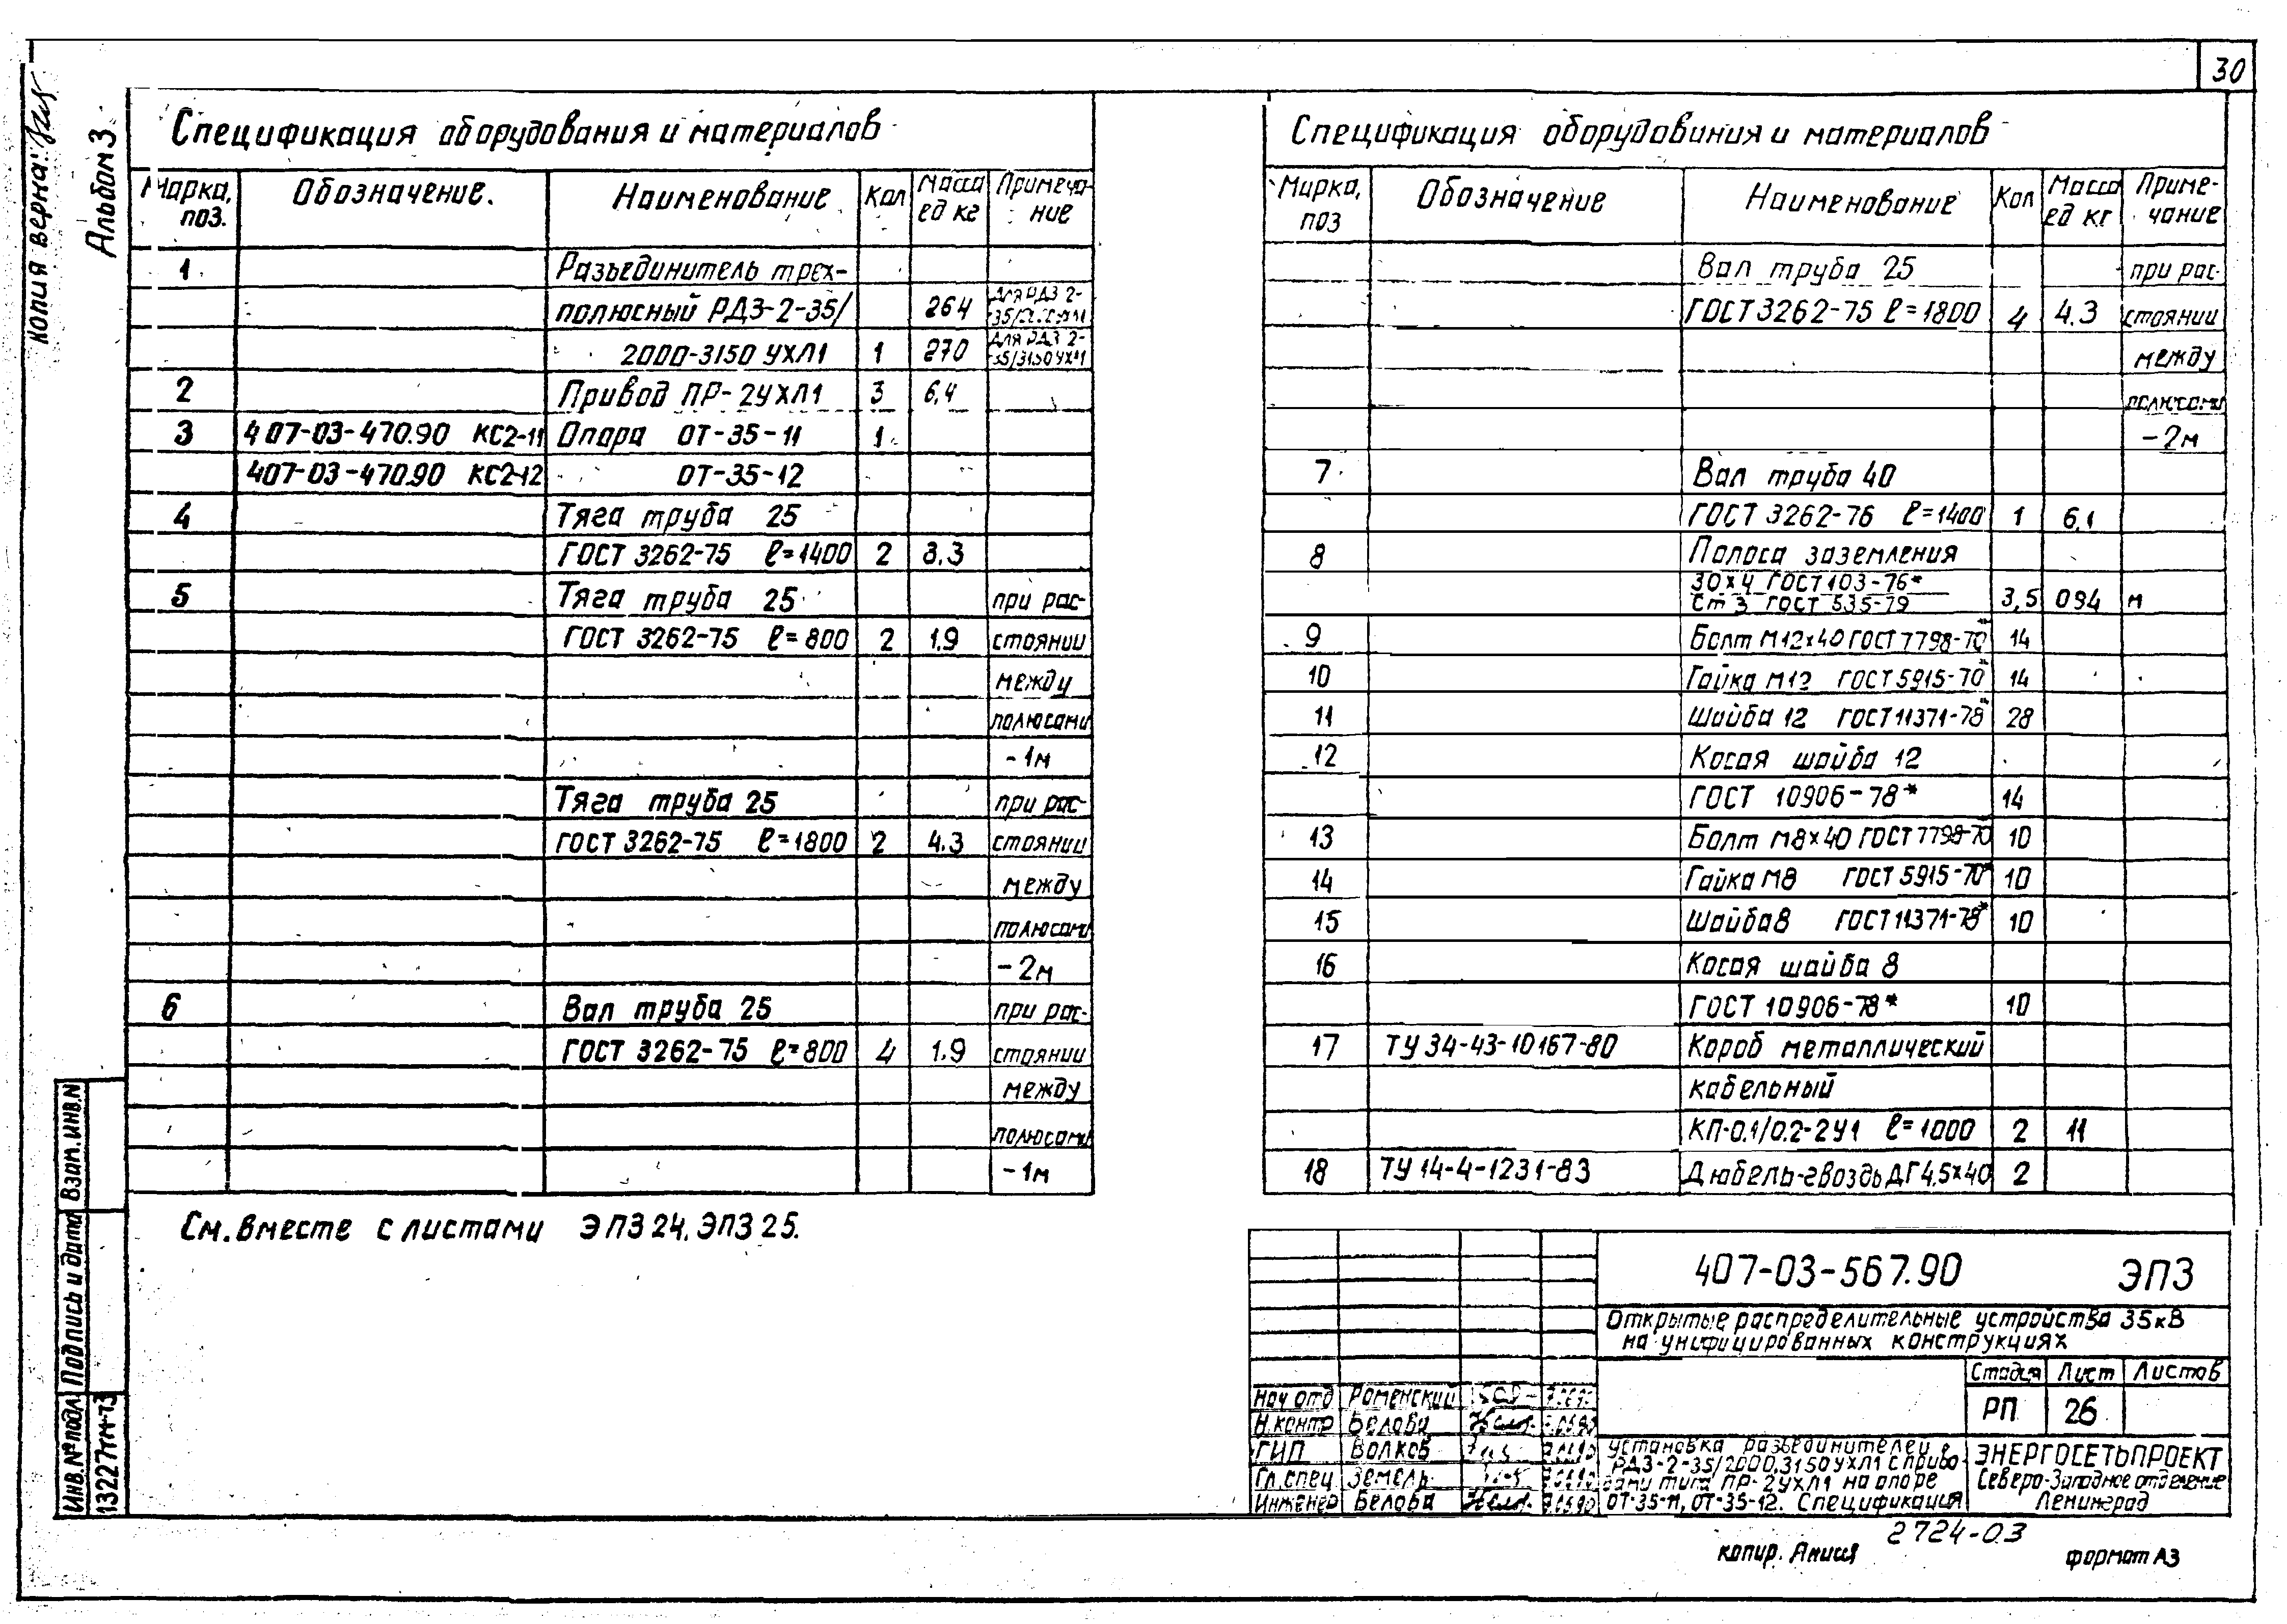 30
Копия верна:
Альбом 3
Спецификация оборудования и материалов
Марка, поз. Обозначение. Наименование Кол Масса ед кг Примечание
1 Разъединитель трех-
полюсный РДЗ-2-35/ 264 Для РДЗ 2-
2000-3150 УХЛ1 1 270 Для РДЗ 2-35/3150 УХЛ1
2 Привод ПР-2УХЛ1 3 6,4
3 407-03-470.90 КС2-11 Опора ОТ-35-11 1
407-03-470.90 КС2-12 ОТ-35-12
4 Тяга труба 25
ГОСТ 3262-75 ℓ=1400 2 3.3
5 Тяга труба 25 при рас-
ГОСТ 3262-75 ℓ=800 2 1.9 стоянии
между
полюсами
-1м
Тяга труба 25 при рас-
ГОСТ 3262-75 ℓ=1800 2 4.3 стоянии
между
полюсами
-2м
6 Вал труба 25 при рас-
ГОСТ 3262-75 ℓ=800 4 1.9 стоянии
между
полюсами
-1м
См. вместе с листами ЭП3 24, ЭП3 25.
Спецификация оборудования и материалов
Марка, поз Обозначение Наименование Кол Масса ед кг Примечание
Вал труба 25 при рас-
ГОСТ 3262-75 ℓ=1800 4 4.3 стоянии
между
полюсами
-2м
7 Вал труба 40
ГОСТ 3262-76 ℓ=1400 1 6.1
8 Полоса заземления
30×4 ГОСТ 103-76*
Ст 3 ГОСТ 535-79 3,5 094 м
9 Болт М12×40 ГОСТ 7798-70* 14
10 Гайка М12 ГОСТ 5915-70* 14
11 Шайба 12 ГОСТ 11371-78* 28
12 Косая шайба 12
ГОСТ 10906-78* 14
13 Болт М8×40 ГОСТ 7798-70 10
14 Гайка М8 ГОСТ 5915-70* 10
15 Шайба 8 ГОСТ 11371-78* 10
16 Косая шайба 8
ГОСТ 10906-78* 10
17 ТУ 34-43-10167-80 Короб металлический
кабельный
КП-0.1/0.2-2У1 ℓ=1000 2 11
18 ТУ 14-4-1231-83 Дюбель-гвоздь ДГ 4,5×40 2
407-03-567.90 ЭП3
Открытые распределительные устройства 35кВ
на унифицированных конструкциях
Стадия Лист Листов
РП 26
Нач отд Роменский
Н.контр Белова
ГИП Волков
Гл.спец Земель
Инженер Белова
Установка разъединителей
РДЗ-2-35/2000,3150 УХЛ1 с приво-
дами типа ПР-2УХЛ1 на опоре
ОТ-35-11, ОТ-35-12. Спецификация
ЭНЕРГОСЕТЬПРОЕКТ
Северо-Западное отделение
Ленинград
2724-03
копир. формат А3
Взам.инв.N
Подпись и дата
Инв.№ подл
13227тм-т3